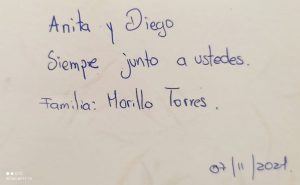 Anita y Diego
Siempre junto a ustedes.
Familia: Morillo Torres.
07/11/2021.